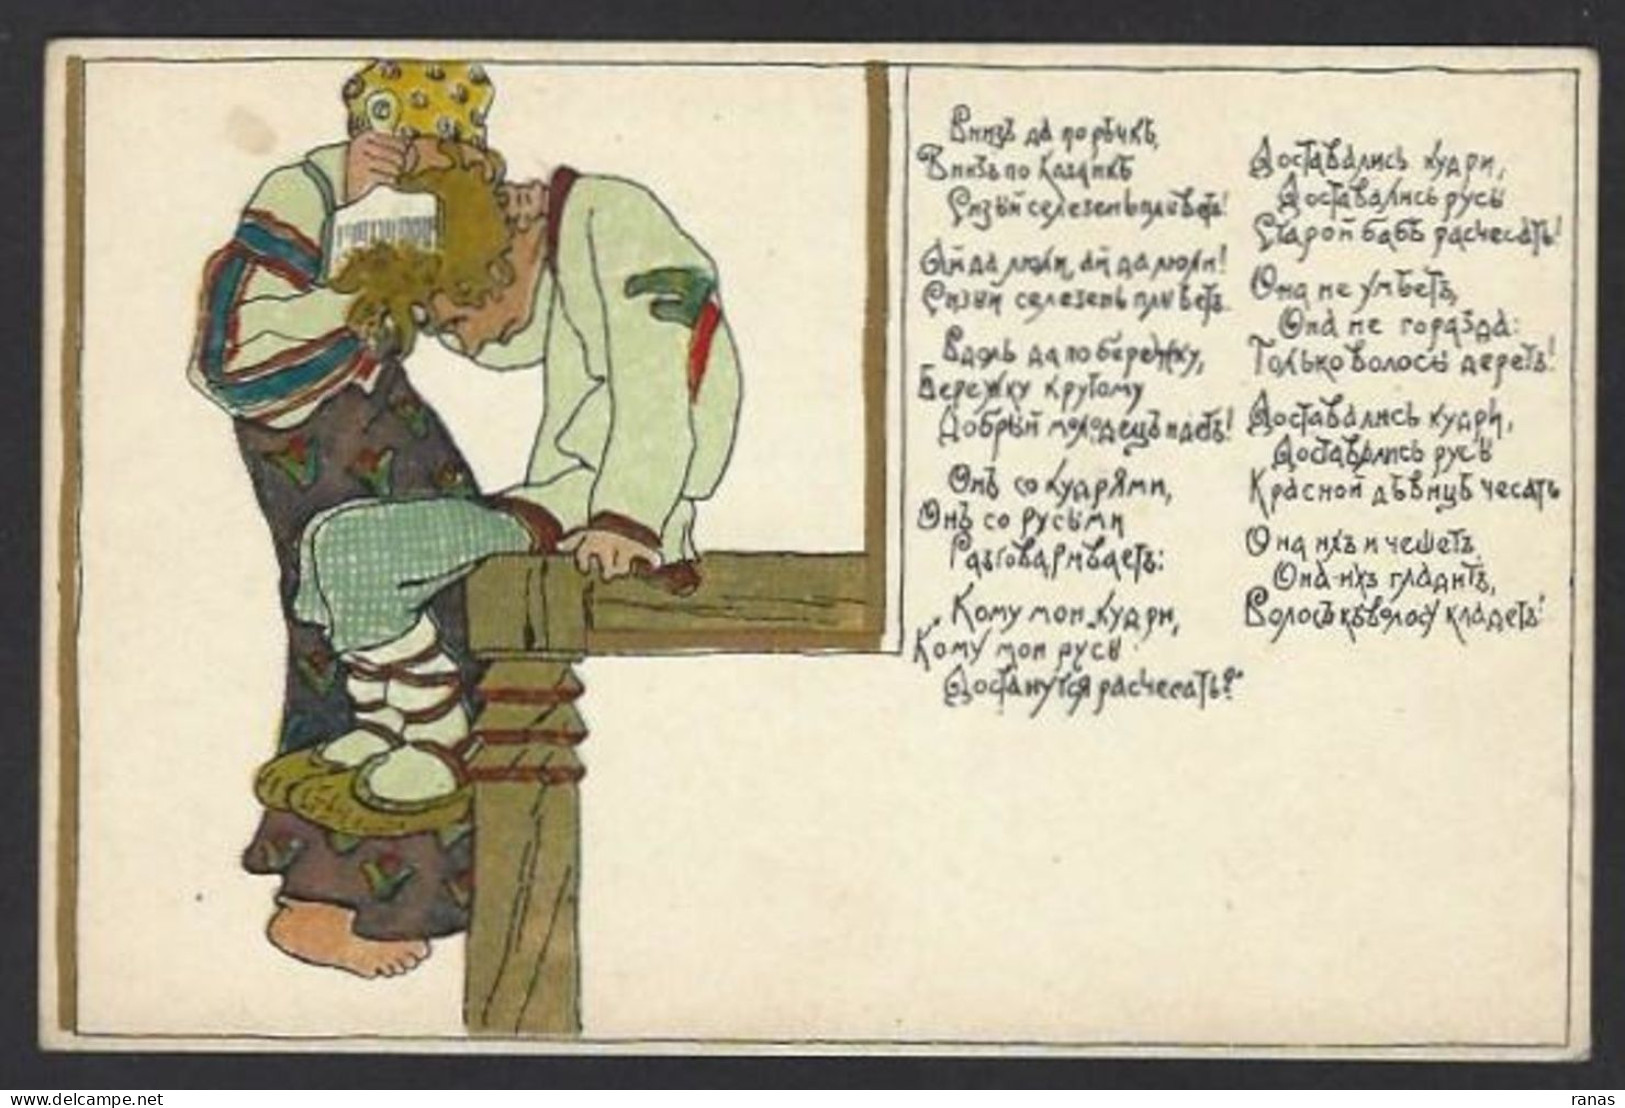 Внизъ да по рѣчкѣ,
Внизъ по Казанкѣ
Сизый селезень плыветъ!
Ай да люли, ай да люли!
Сизый селезень плыветъ.
Вдоль да по бережку,
Бережку крутому
Добрый молодецъ идетъ!
Онъ со кудрями,
Онъ со русыми
Разговариваетъ:
„Кому мои кудри,
Кому мои русы
Достанутся расчесать?"
Доставались кудри,
Доставались русы
Старой бабѣ расчесать!
Она не умѣетъ,
Она не горазда:
Только волосы деретъ!
Доставались кудри,
Доставались русы
Красной дѣвицѣ чесать
Она ихъ и чешетъ,
Она ихъ гладитъ,
Волосъ къ волосу кладетъ!
www.delcampe.net
ranas